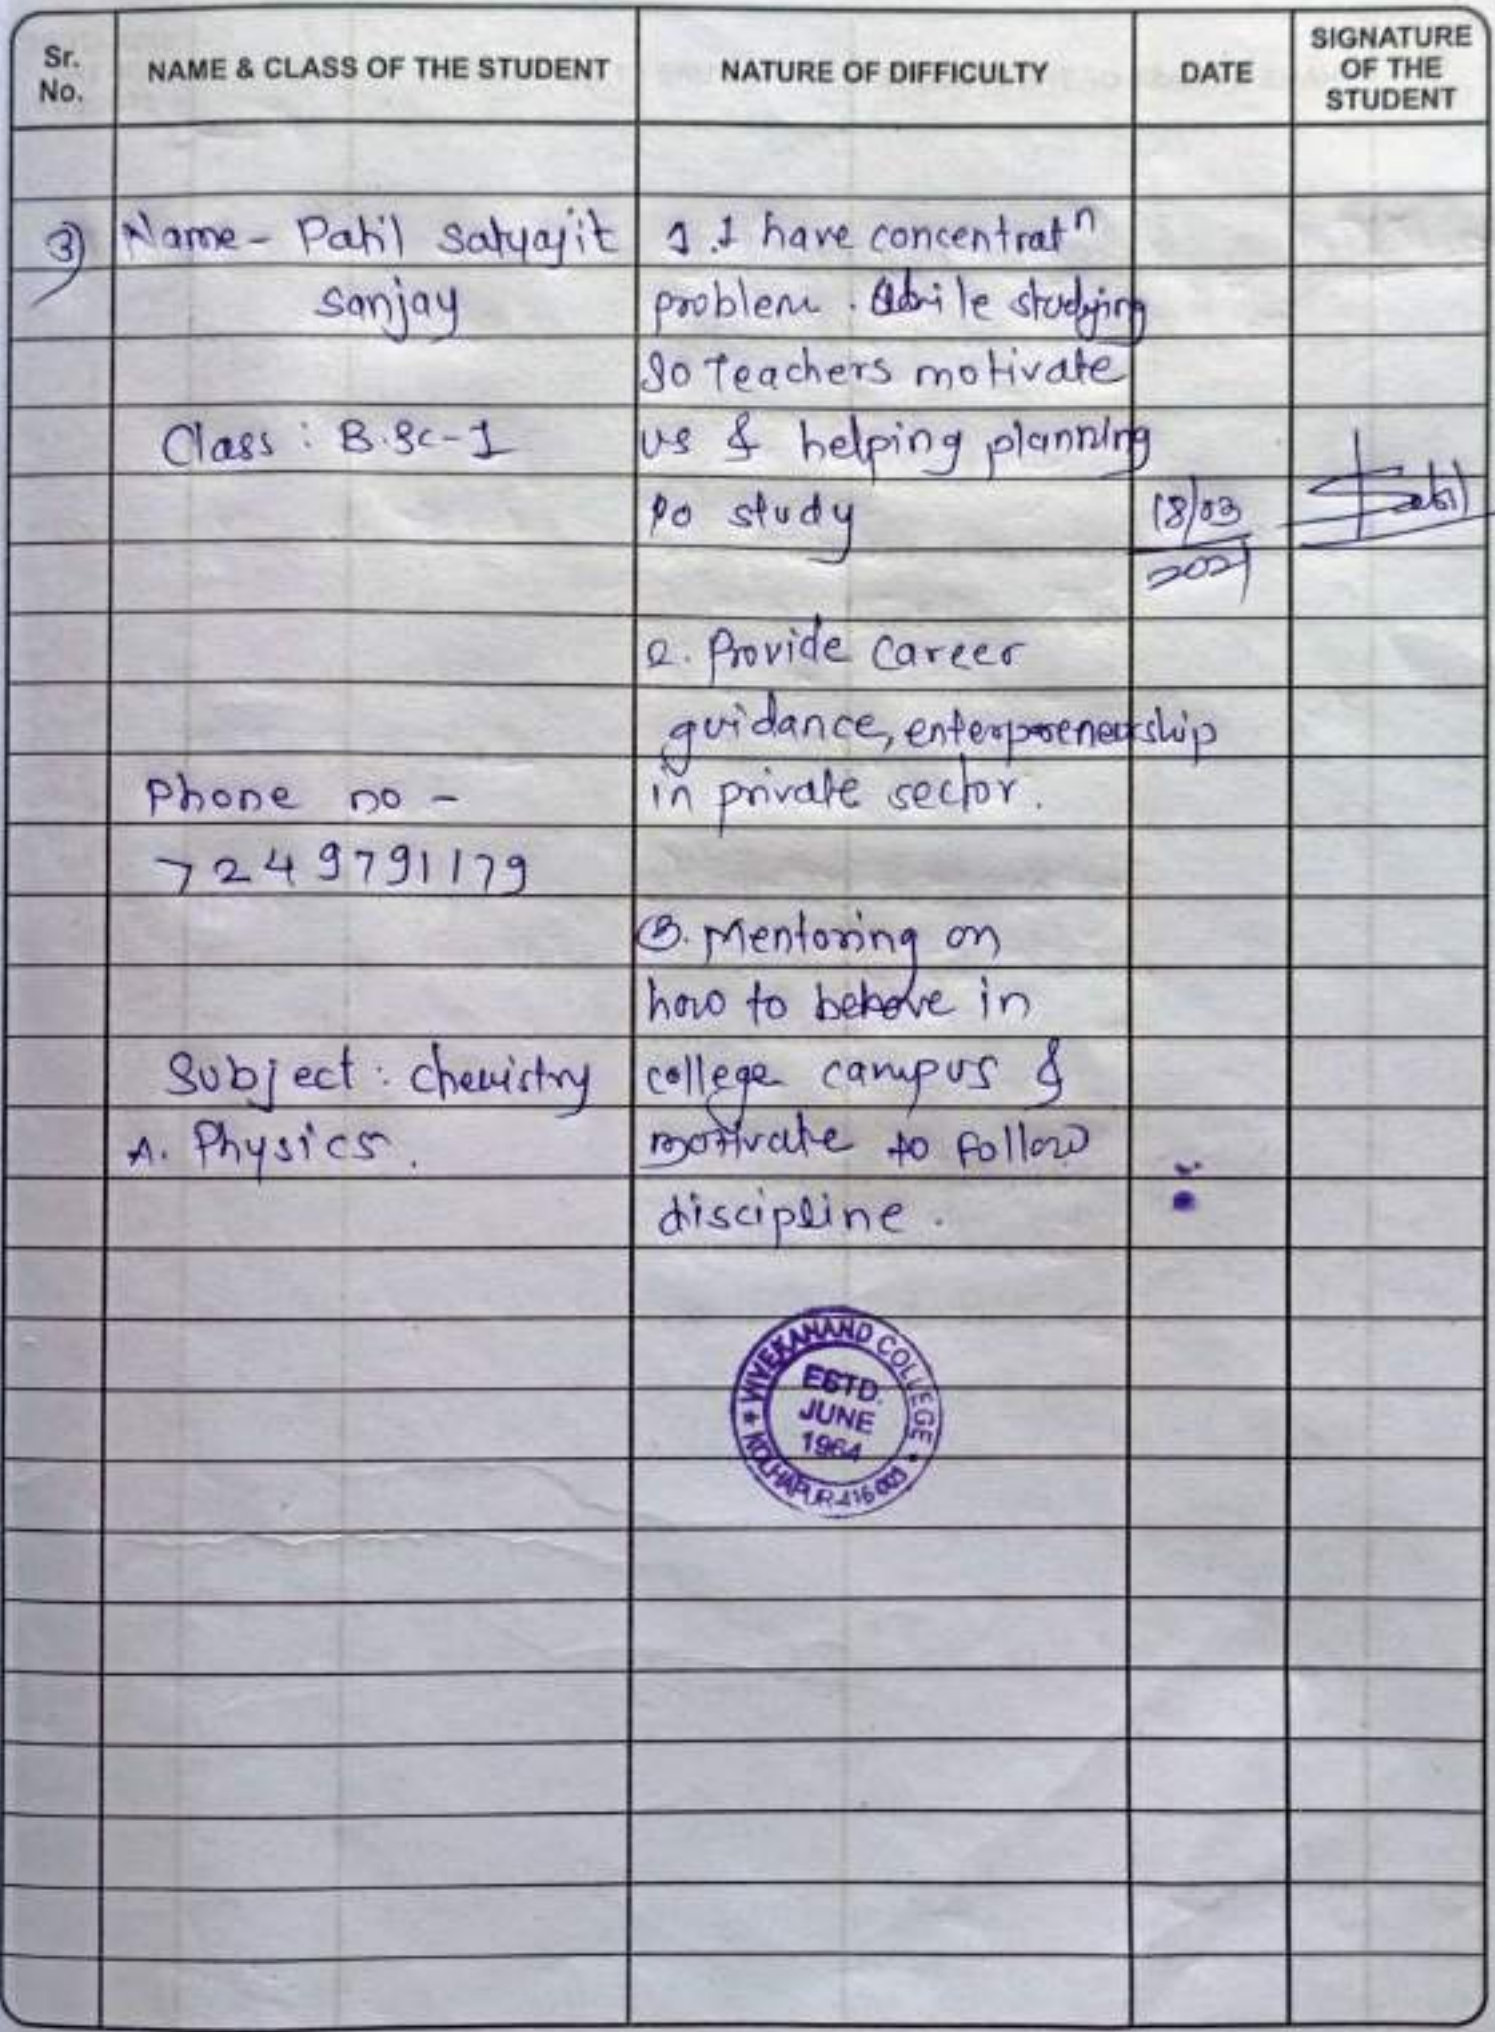 Sr. No.
NAME & CLASS OF THE STUDENT
NATURE OF DIFFICULTY
DATE
SIGNATURE OF THE STUDENT
3) Name - Patil Satyajit
Sanjay
Class : B.Sc-1
Phone no -
7249791179
Subject : chemistry
A. Physics.
1. I have concentratⁿ
problem. While studying
So Teachers motivate
us & helping planning
to study
2. Provide career
guidance, enterpreneurship
in private sector.
3. Mentoring on
how to behave in
college campus &
motivate to follow
discipline.
18/03
2021
Patil
VIVEKANAND COLLEGE
KOLHAPUR-416 003
ESTD.
JUNE
1964